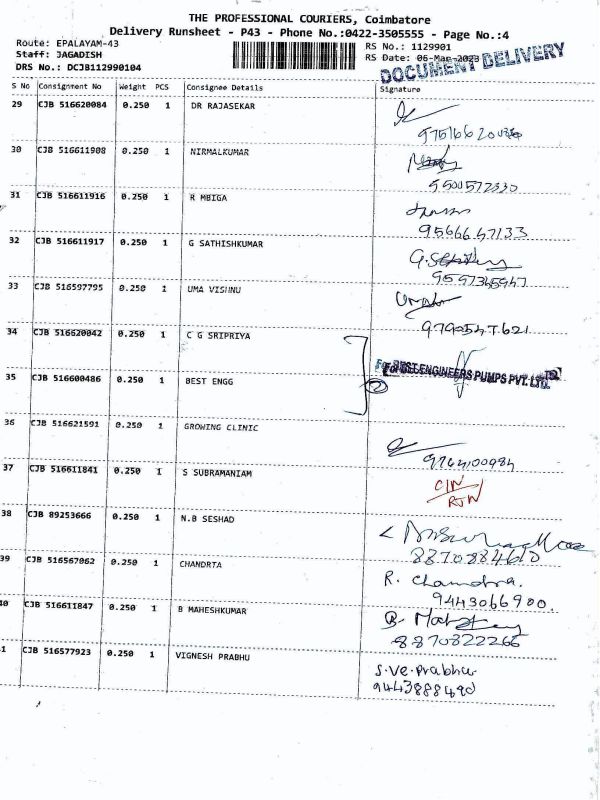 THE PROFESSIONAL COURIERS, Coimbatore
Delivery Runsheet - P43 - Phone No.:0422-3505555 - Page No.:4
Route: EPALAYAM-43
Staff: JAGADISH
DRS No.: DCJB112990104
RS No.: 1129901
RS Date: 06-Mar-2023
DOCUMENT DELIVERY
S No Consignment No Weight PCS Consignee Details Signature
29 CJB 516620084 0.250 1 DR RAJASEKAR
30 CJB 516611908 0.250 1 NIRMALKUMAR
9500572330
31 CJB 516611916 0.250 1 R MBIGA
9566647133
32 CJB 516611917 0.250 1 G SATHISHKUMAR
9597345947
33 CJB 516597795 0.250 1 UMA VISHNU
9790547621
34 CJB 516620042 0.250 1 C G SRIPRIYA
For BEST ENGINEERS PUMPS PVT. LTD.
35 CJB 516600486 0.250 1 BEST ENGG
2
36 CJB 516621591 0.250 1 GROWING CLINIC
9764100984
37 CJB 516611841 0.250 1 S SUBRAMANIAM
C/N
RTN
38 CJB 89253666 0.250 1 N.B SESHAD
8870884610
39 CJB 516567062 0.250 1 CHANDRTA R. Chandra.
9443066900.
40 CJB 516611847 0.250 1 B MAHESHKUMAR
8870822266
1 CJB 516577923 0.250 1 VIGNESH PRABHU S.ve.prabhu
9443888490